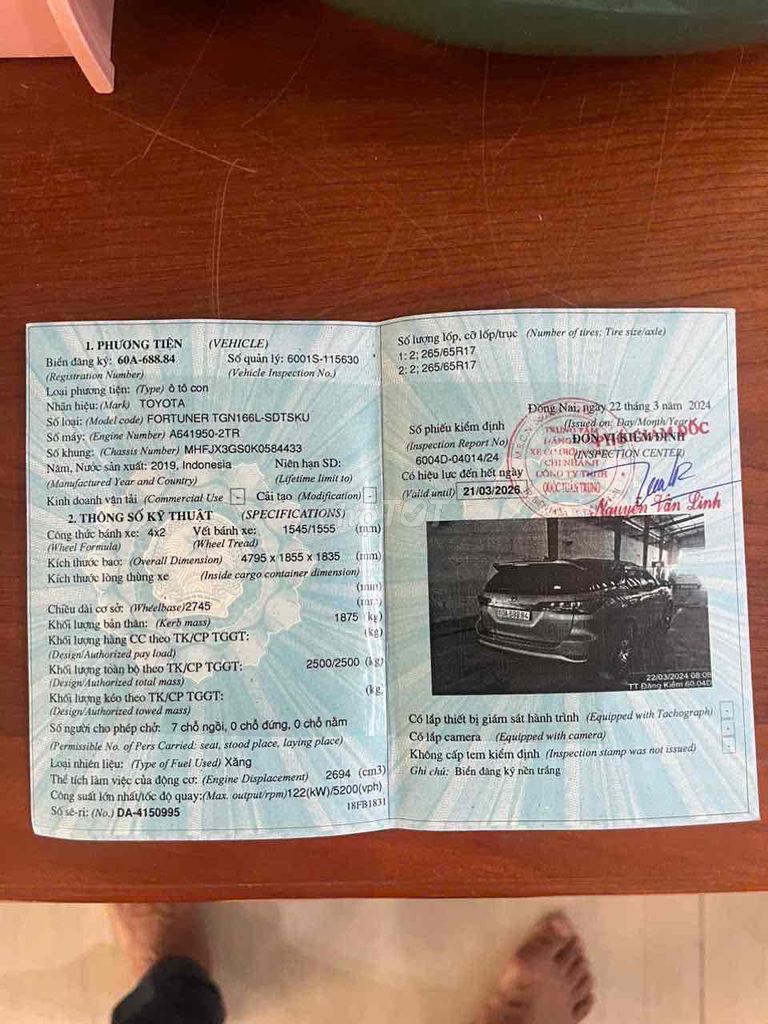 1. PHƯƠNG TIỆN (VEHICLE)
Biển đăng ký: 60A-688.84 Số quản lý: 6001S-115630
(Registration Number) (Vehicle Inspection No.)
Loại phương tiện: (Type) ô tô con
Nhãn hiệu: (Mark) TOYOTA
Số loại: (Model code) FORTUNER TGN166L-SDTSKU
Số máy: (Engine Number) A641950-2TR
Số khung: (Chassis Number) MHFJX3GS0K0584433
Năm, Nước sản xuất: 2019, Indonesia Niên hạn SD:
(Manufactured Year and Country) (Lifetime limit to)
Kinh doanh vận tải (Commercial Use) - Cải tạo (Modification) -
2. THÔNG SỐ KỸ THUẬT (SPECIFICATIONS)
Công thức bánh xe: 4x2 Vết bánh xe: 1545/1555 (mm)
(Wheel Formula) (Wheel Tread)
Kích thước bao: (Overall Dimension) 4795 x 1855 x 1835 (mm)
Kích thước lòng thùng xe (Inside cargo container dimension)
(mm)
Chiều dài cơ sở: (Wheelbase) 2745 (mm)
Khối lượng bản thân: (Kerb mass) 1875 (kg)
Khối lượng hàng CC theo TK/CP TGGT: (kg)
(Design/Authorized pay load)
Khối lượng toàn bộ theo TK/CP TGGT: 2500/2500 (kg)
(Design/Authorized total mass)
Khối lượng kéo theo TK/CP TGGT: (kg)
(Design/Authorized towed mass)
Số người cho phép chở: 7 chỗ ngồi, 0 chỗ đứng, 0 chỗ nằm
(Permissible No. of Pers Carried: seat, stood place, laying place)
Loại nhiên liệu: (Type of Fuel Used) Xăng
Thể tích làm việc của động cơ: (Engine Displacement) 2694 (cm3)
Công suất lớn nhất/tốc độ quay:(Max. output/rpm)122(kW)/5200(vph)
Số sê-ri: (No.) DA-4150995 18FB1831
Số lượng lốp, cỡ lốp/trục (Number of tires; Tire size/axle)
1: 2; 265/65R17
2: 2; 265/65R17
Đồng Nai, ngày 22 tháng 3 năm 2024
Số phiếu kiểm định (Issued on: Day/Month/Year)
(Inspection Report No) ĐƠN VỊ KIỂM ĐỊNH
6004D-04014/24 (INSPECTION CENTER)
Có hiệu lực đến hết ngày
(Valid until) 21/03/2026
TRUNG TÂM
CHI NHÁNH
CÔNG TY TNHH
QUỐC TUẤN TRUNG
GIÁM ĐỐC
Nguyễn Văn Linh
60A 688.84
22/03/2024 08:08
TT Đăng Kiểm 60.04D
Có lắp thiết bị giám sát hành trình (Equipped with Tachograph) -
Có lắp camera (Equipped with camera) -
Không cấp tem kiểm định (Inspection stamp was not issued) -
Ghi chú: Biển đăng ký nền trắng